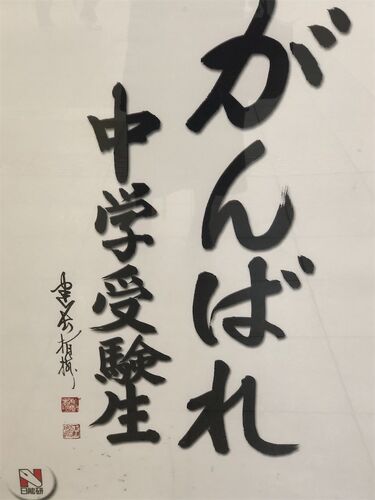 がんばれ
中学受験生
日能研